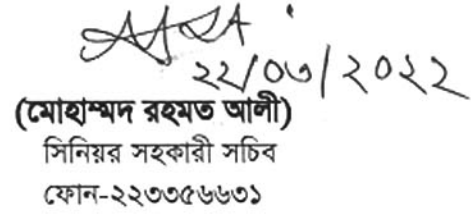 ২২/০৩/২০২২
(মোহাম্মদ রহমত আলী)
সিনিয়র সহকারী সচিব
ফোন-২২৩৩৫৬৬৩১